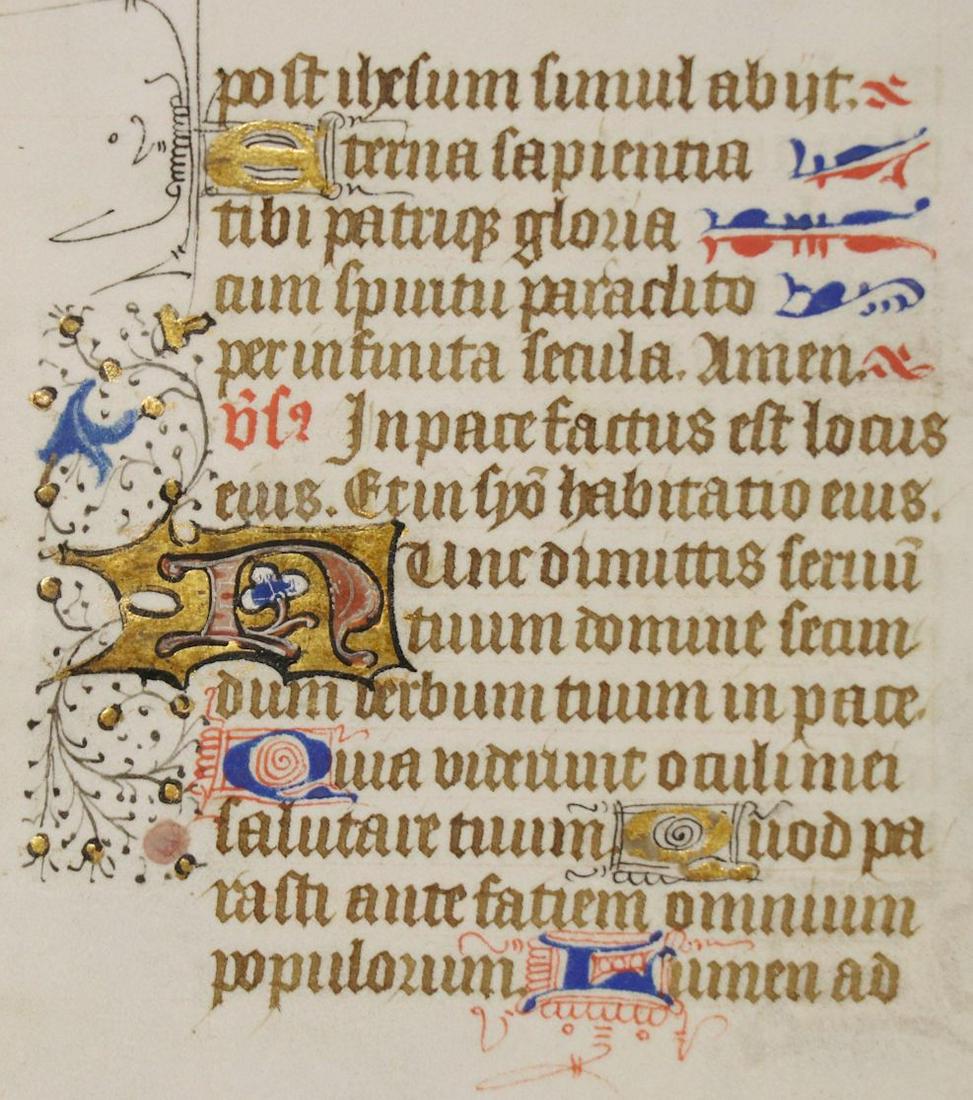 post ihesum simul abijt.
Eterna sapientia
tibi patriqꝫ gloria
cum spiritu paraclito
per infinita secula. Amen.
v̄sꝰ In pace factus est locus
eius. Et in syō habitatio eius.
NUnc dimittis seruū
tuum domine secun
dum verbum tuum in pace.
Quia viderunt oculi mei
salutare tuum Quod pa
rasti ante fatiem omnium
populorum. Lumen ad